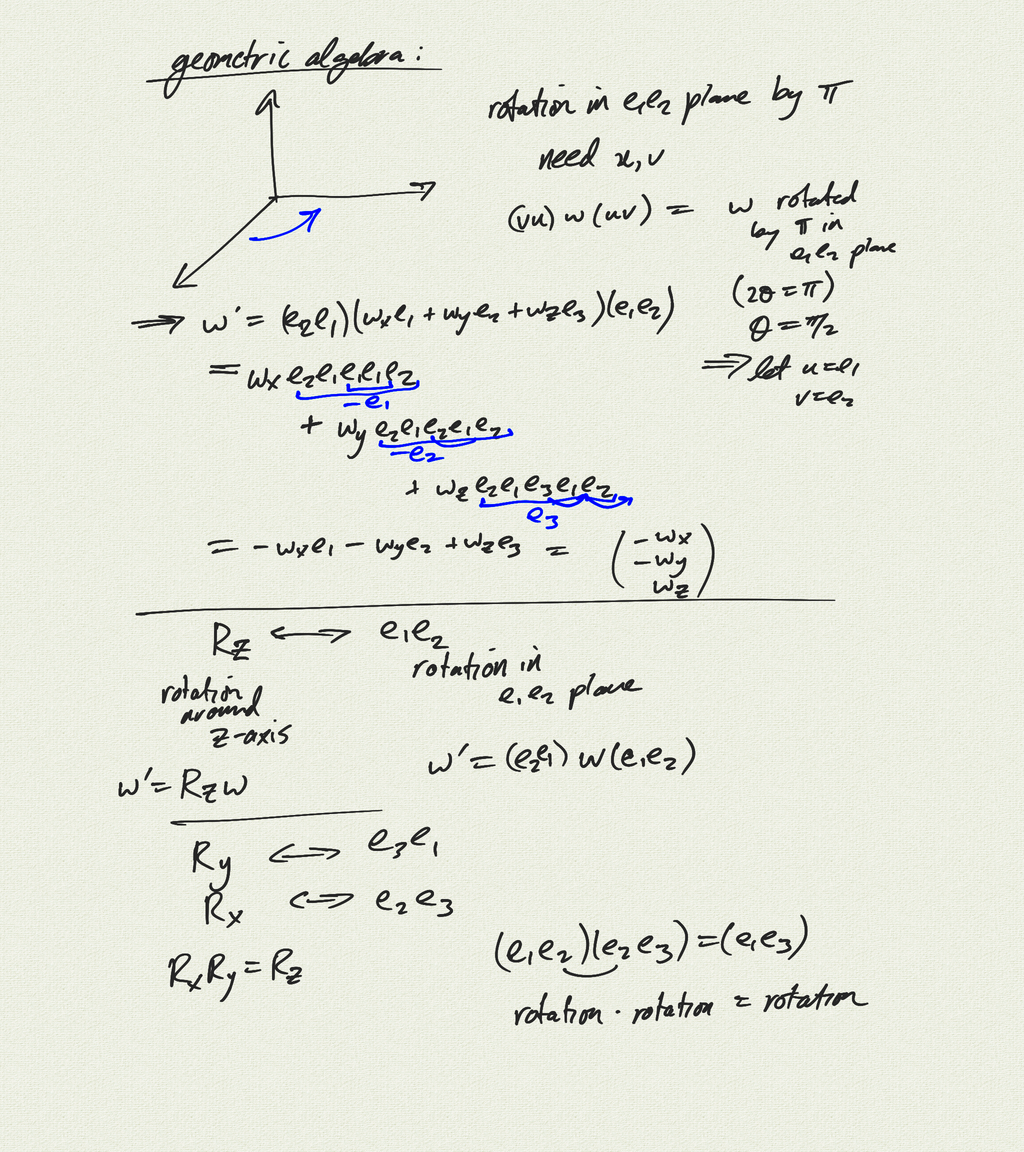 geometric algebra:
rotation in e₁e₂ plane by π
need u, v
(vu) w (uv) = w rotated
by π in
e₁e₂ plane
(2θ = π)
θ = π/2
⟹ let u = e₁
v = e₂
⟹ w' = (e₂e₁)(wₓe₁ + w_y e₂ + w_z e₃)(e₁e₂)
= wₓ e₂e₁e₁e₁e₂
-e₁
+ w_y e₂e₁e₂e₁e₂
-e₂
+ w_z e₂e₁e₃e₁e₂
e₃
= -wₓe₁ - w_y e₂ + w_z e₃ = (-wₓ
-w_y
w_z)
R_z ⟷ e₁e₂
rotation in
e₁e₂ plane
rotation
around
z-axis
w' = (e₂e₁) w (e₁e₂)
w' = R_z w
R_y ⟷ e₃e₁
Rₓ ⟷ e₂e₃
Rₓ R_y = R_z
(e₁e₂)(e₂e₃) = (e₁e₃)
rotation · rotation = rotation